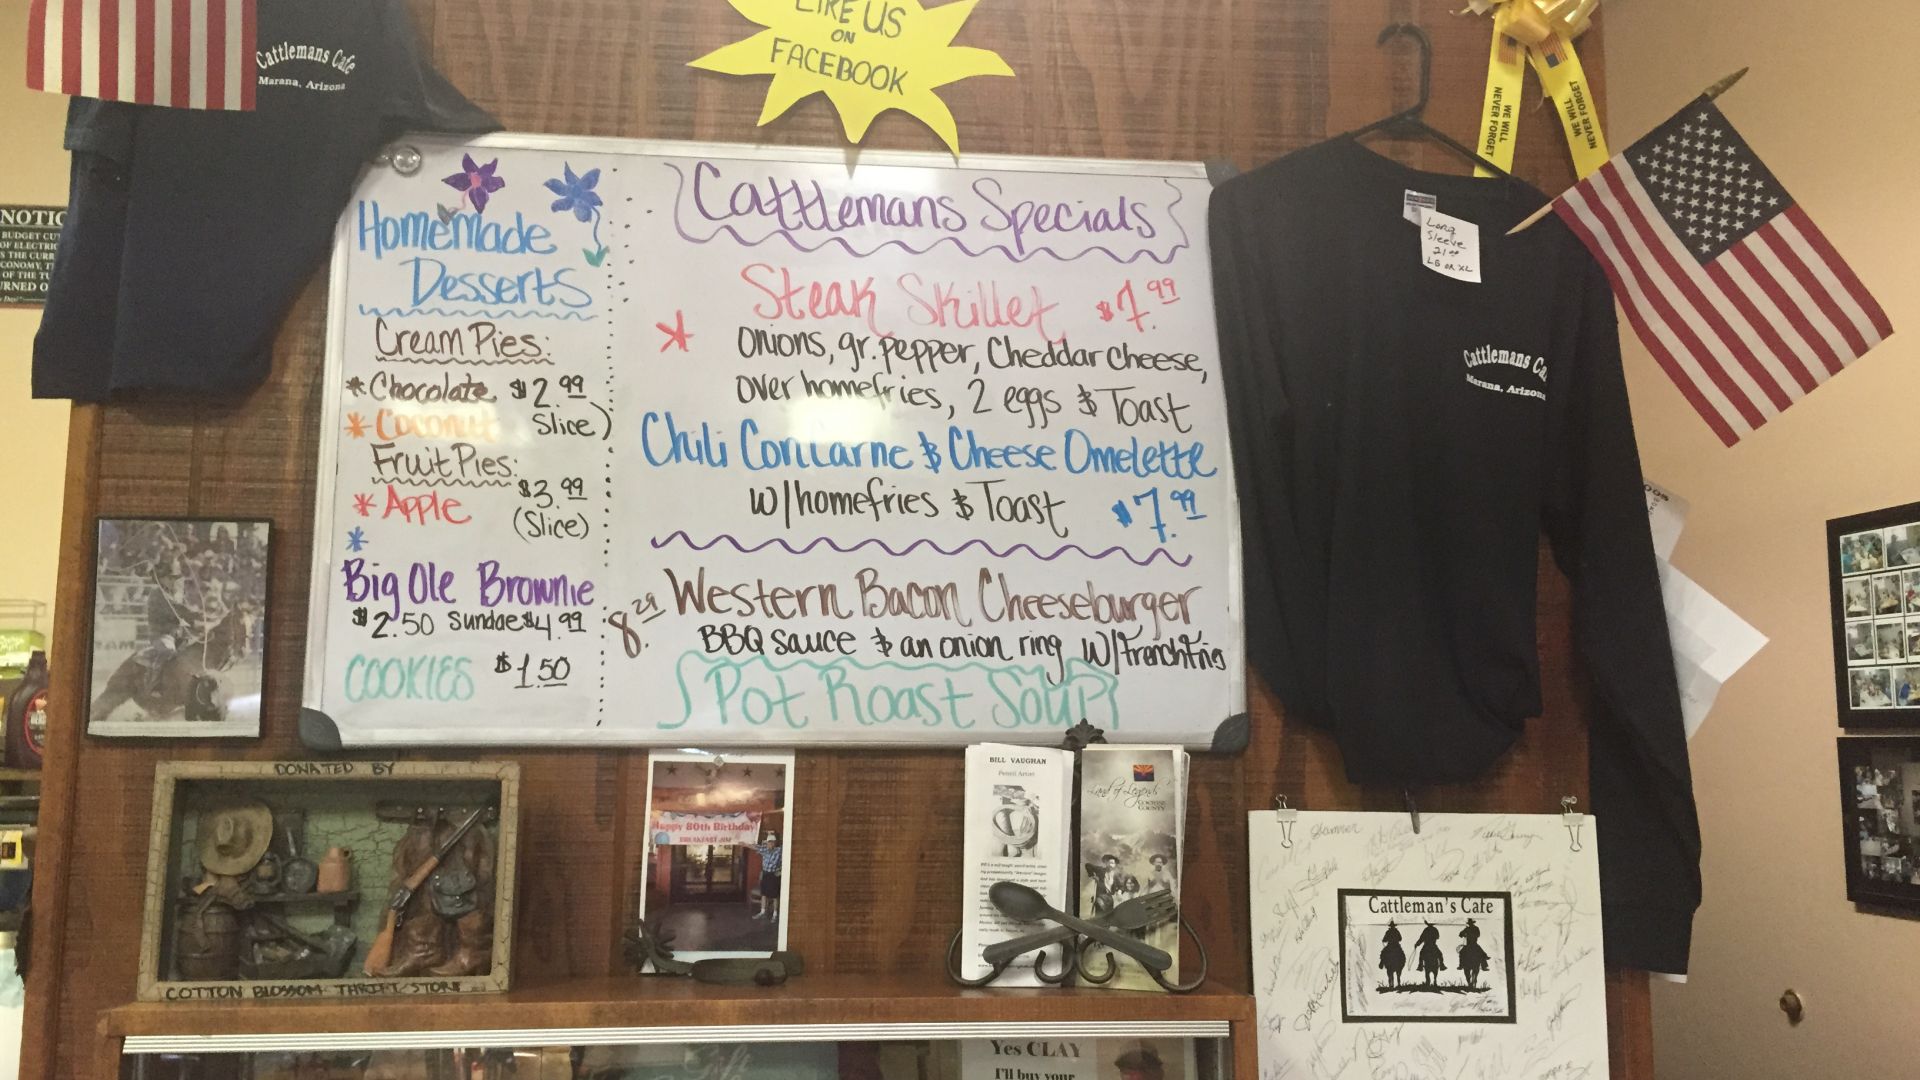 LIKE US
ON
FACEBOOK
Cattlemans Cafe
Marana, Arizona
Homemade
Desserts
Cream Pies:
* Chocolate $2.99
* Coconut Slice)
Fruit Pies:
* Apple $3.99
(Slice)
*
Big Ole Brownie
$2.50 Sundae $4.99
COOKIES $1.50
Cattlemans Specials
Steak Skillet $7.99
* Onions, gr. pepper, Cheddar cheese,
over homefries, 2 eggs & Toast
Chili Con Carne & Cheese Omelette
w/homefries & Toast $7.99
8.29 Western Bacon Cheeseburger
BBQ sauce & an onion ring w/frenchfries
Pot Roast Soup
WE WILL
NEVER FORGET
WE WILL
NEVER FORGET
Long
Sleeve
21.00
LG or XL
Cattlemans Ca
Marana, Arizona
NOTIC
BUDGET CU
OF ELECTRIC
S THE CURR
CONOMY, T
OF THE TU
RNED O
DONATED BY
COTTON BLOSSOM THRIFT STORE
Happy 80th Birthday
BREAKFAST JIM
BILL VAUGHAN
Pencil Artist
Land of Legends
COCHISE
COUNTY
Cattleman's Cafe
Yes CLAY
I'll buy your